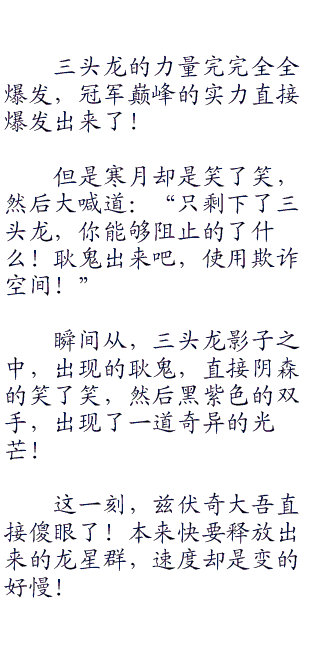 三头龙的力量完完全全
爆发，冠军巅峰的实力直接
爆发出来了！
但是寒月却是笑了笑，
然后大喊道：“只剩下了三
头龙，你能够阻止的了什
么！耿鬼出来吧，使用欺诈
空间！”
瞬间从，三头龙影子之
中，出现的耿鬼，直接阴森
的笑了笑，然后黑紫色的双
手，出现了一道奇异的光
芒！
这一刻，兹伏奇大吾直
接傻眼了！本来快要释放出
来的龙星群，速度却是变的
好慢！